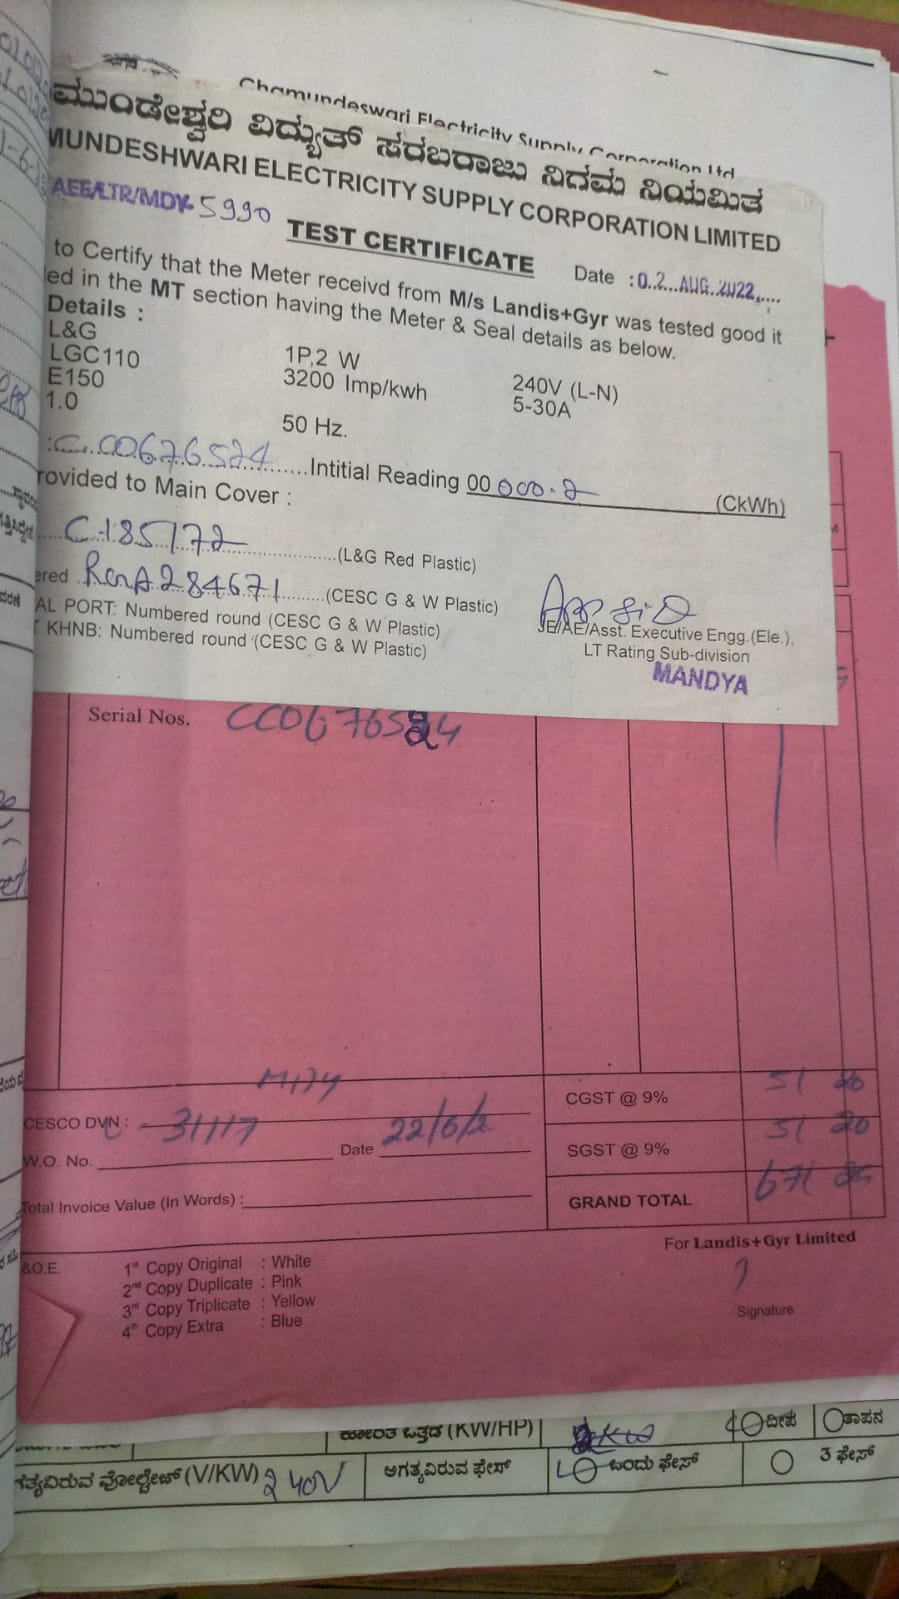 Chamundeswari Electricity Supply Corporation Ltd
ಮುಂಡೇಶ್ವರಿ ವಿದ್ಯುತ್ ಸರಬರಾಜು ನಿಗಮ ನಿಯಮಿತ
MUNDESHWARI ELECTRICITY SUPPLY CORPORATION LIMITED
AEE/LTR/MDY 5990
TEST CERTIFICATE
Date : 02 AUG 2022
to Certify that the Meter receivd from M/s Landis+Gyr was tested good it
ed in the MT section having the Meter & Seal details as below.
Details :
L&G
LGC110 1P,2 W 240V (L-N)
E150 3200 Imp/kwh 5-30A
1.0 50 Hz.
: C.C0676524 Intitial Reading 00 000.2 (CkWh)
rovided to Main Cover :
C-185172 (L&G Red Plastic)
ered A284671 (CESC G & W Plastic)
AL PORT: Numbered round (CESC G & W Plastic)
T KHNB: Numbered round (CESC G & W Plastic)
JE/AE/Asst. Executive Engg.(Ele.),
LT Rating Sub-division
MANDYA
Serial Nos. CC0676524
CGST @ 9% 51 20
CESCO DVN : 31117
SGST @ 9% 51 20
W.O. No. Date 22/6/2
Total Invoice Value (In Words) :
GRAND TOTAL 671
For Landis+Gyr Limited
&O.E.
1st Copy Original : White
2nd Copy Duplicate : Pink
3rd Copy Triplicate : Yellow
4th Copy Extra : Blue
Signature
ಕೋರಿತ ಒತ್ತಡ (KW/HP) 2KW ದೀಪ ತಾಪನ
ಗತ್ಯವಿರುವ ವೋಲ್ಟೇಜ್ (V/KW) 240V ಅಗತ್ಯವಿರುವ ಫೇಸ್ ಒಂದು ಫೇಸ್ 3 ಫೇಸ್